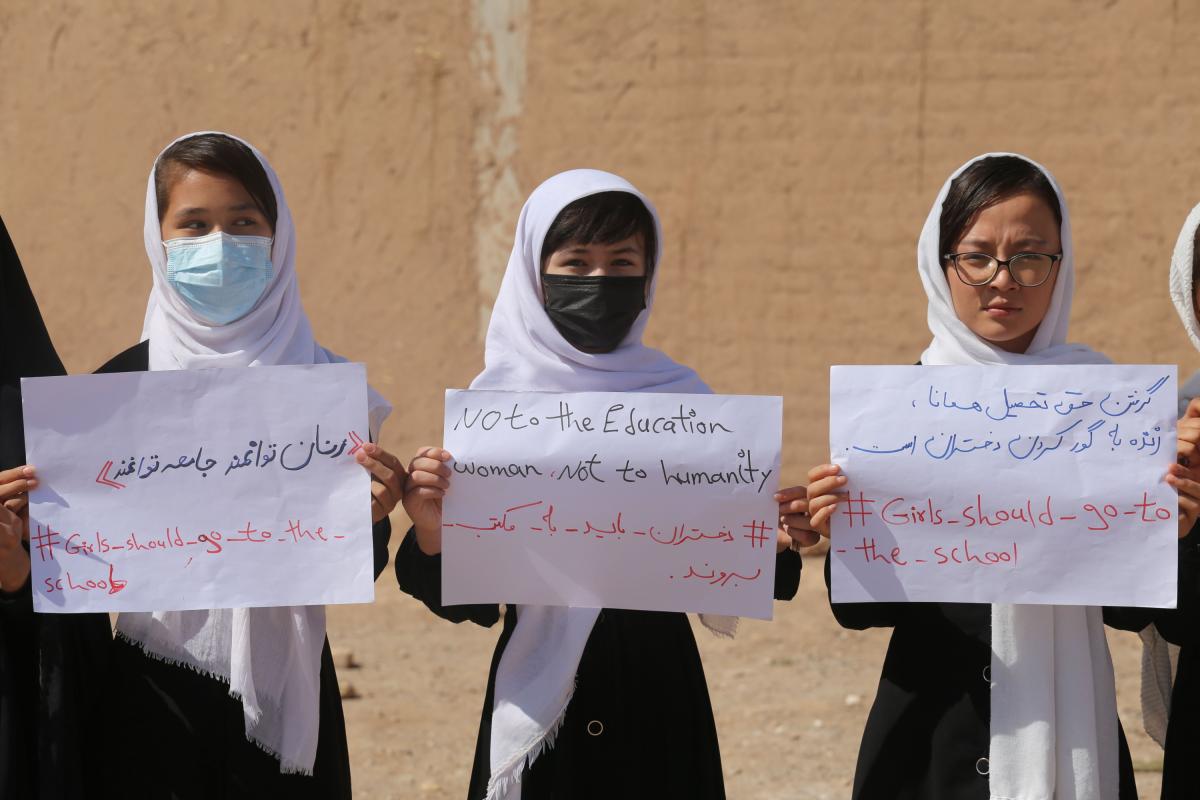 《زنان توانمند جامعه توانمند》
#Girls_should_go_to_the_
school
NO to the Education
woman, Not to humanity
#دختران_باید_به_مکتب_
بروند.
گرفتن حق تحصیل همانا،
زنده به گور کردن دختران است.
#Girls_should_go_to
_the_school